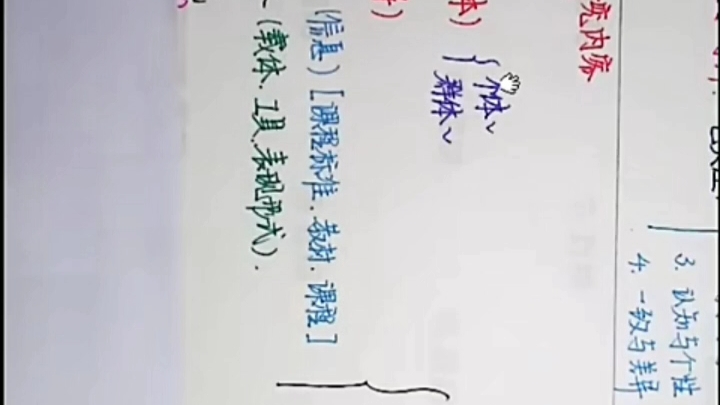 境内容
体)
个体✓
群体✓
(信息) [课程标准.教材.课程]
(载体.工具.表现形式).
3. 认知与个性
4. 一致与差异